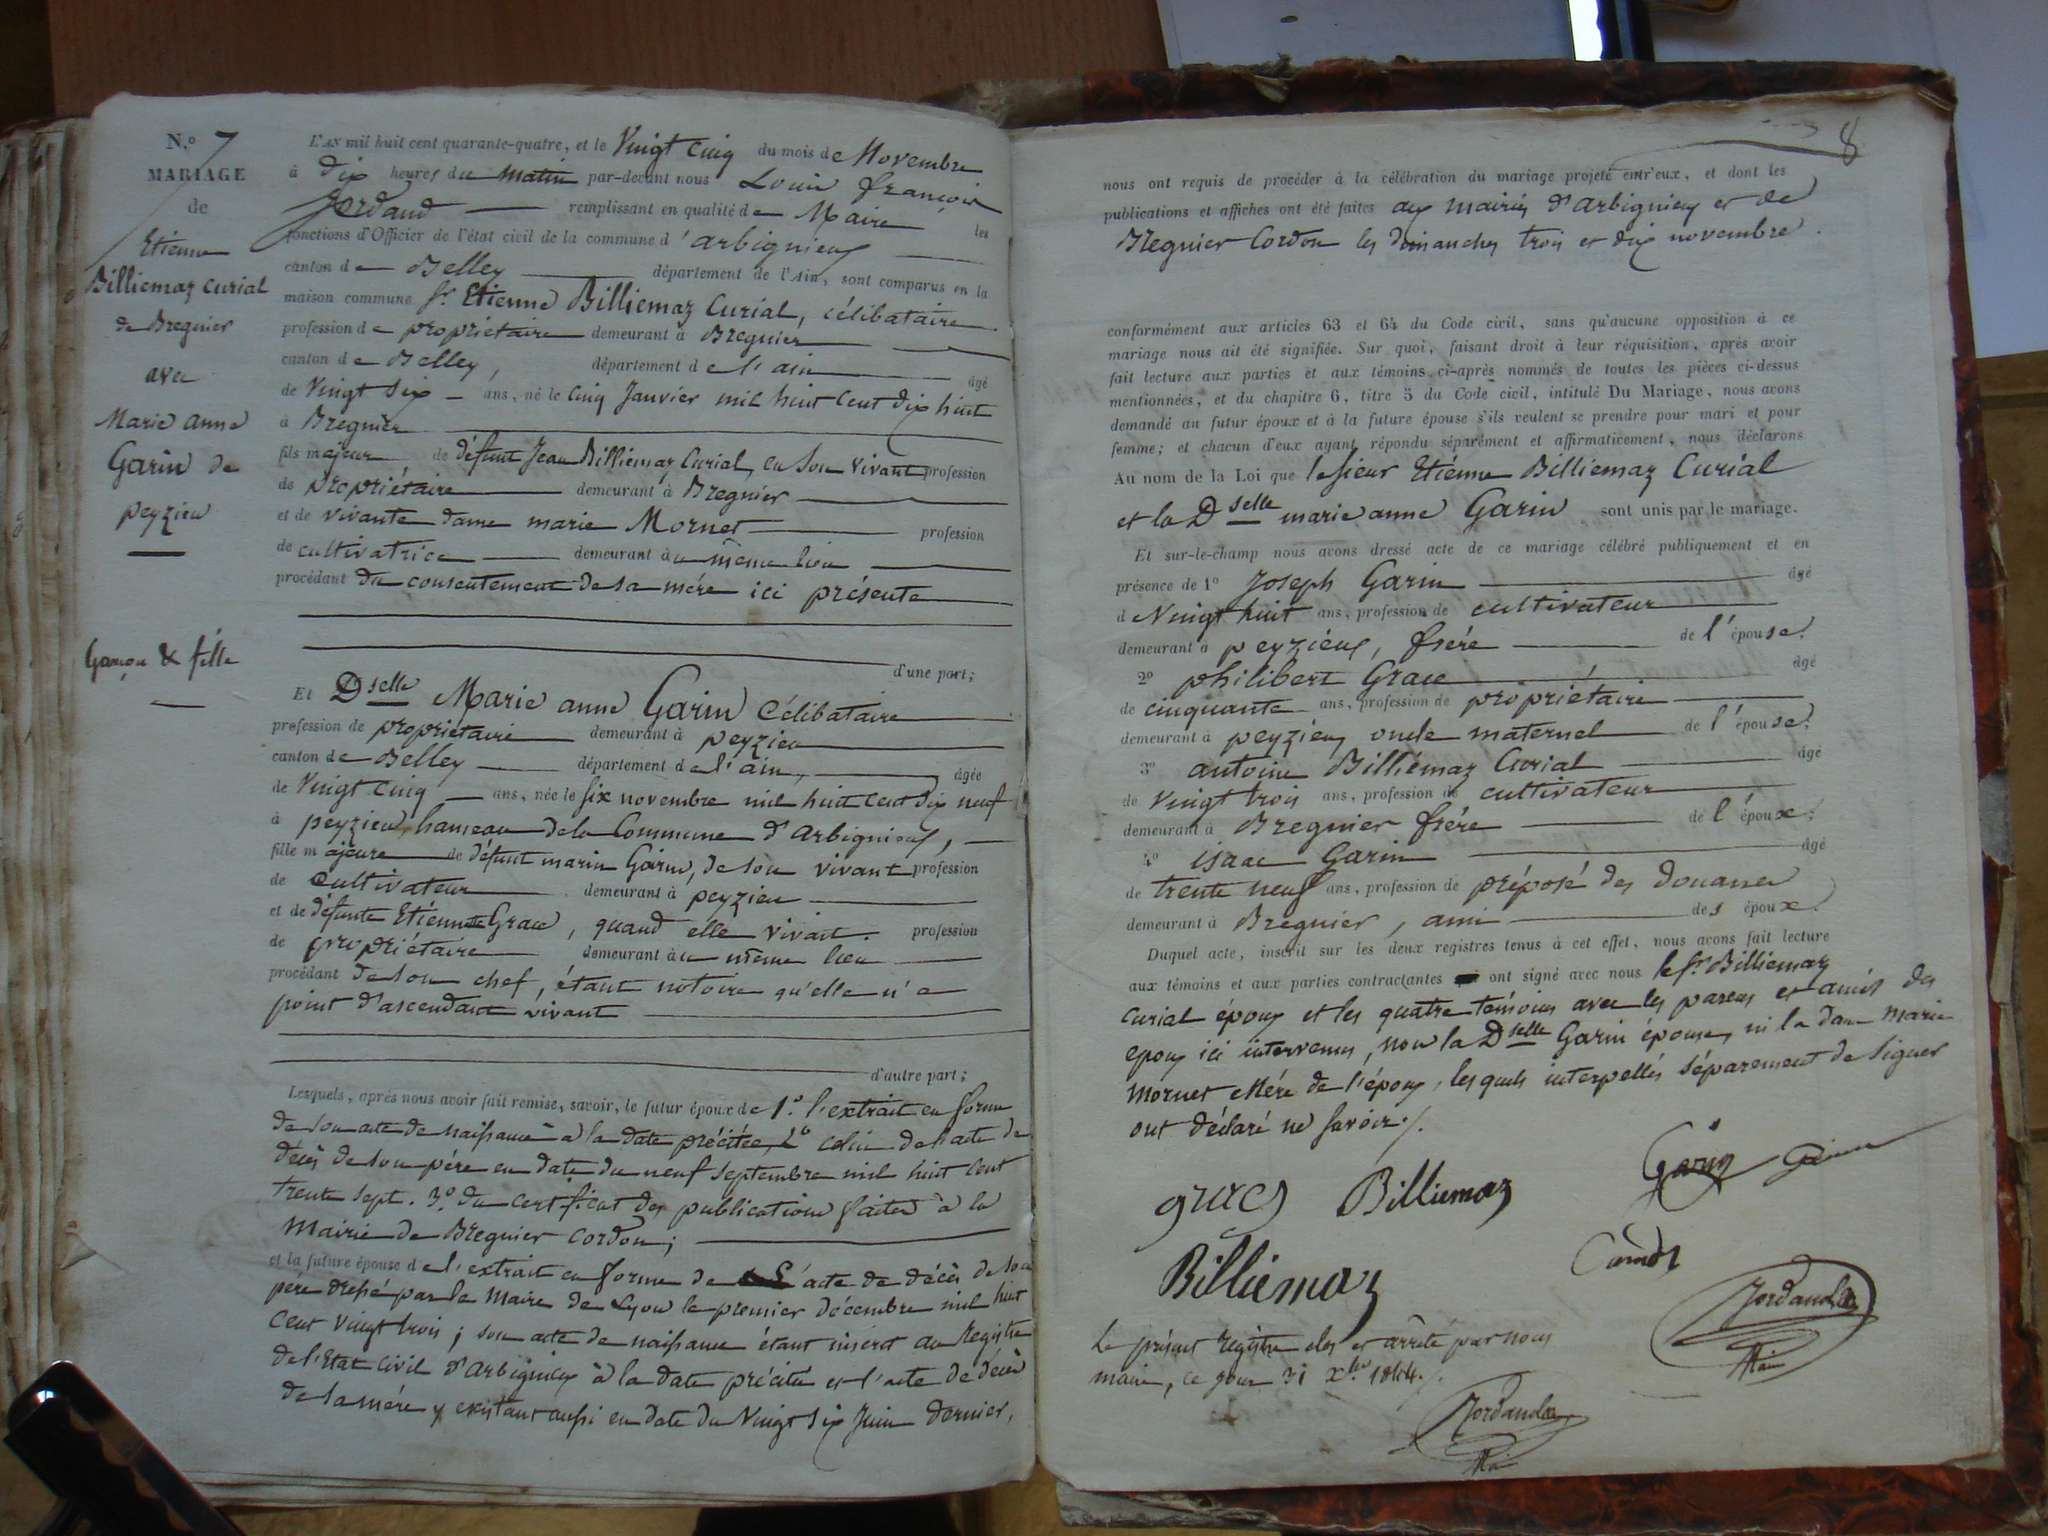 N.º 7
MARIAGE
de
Etienne
Billiemaz Curial
de Bregnier
avec
Marie anne
Garin de
peyzieu
Garçon & fille
L'AN mil huit cent quarante-quatre, et le Vingt cinq du mois de Novembre
à dix heures du matin par-devant nous Louis françois
Jordand remplissant en qualité de Maire les
fonctions d'Officier de l'état civil de la commune d'arbignieu
canton de Belley département de l'Ain, sont comparus en la
maison commune Sr Etienne Billiemaz Curial, célibataire
profession de propriétaire demeurant à Bregnier
canton de Belley, département de l'ain âgé
de Vingt six ans, né le cinq Janvier mil huit cent dix huit
à Bregnier
fils majeur de défunt Jean Billiemaz Curial, en son vivant profession
de propriétaire demeurant à Bregnier
et de vivante dame marie Mornet profession
de cultivatrice demeurant au même lieu
procédant du consentement de sa mère ici présente
d'une part;
Et Dselle Marie anne Garin Célibataire
profession de propriétaire demeurant à peyzieu
canton de Belley département de l'ain, âgée
de Vingt cinq ans, née le six novembre mil huit cent dix neuf
à peyzieu, hameau de la Commune d'arbignieu,
fille majeure de défunt marin Garin, de son vivant profession
de cultivateur demeurant à peyzieu
et de défunte Etiennette Grace, quand elle vivait. profession
de propriétaire demeurant au même lieu
procédant de son chef, étant notoire qu'elle n'a
point d'ascendant vivant
d'autre part;
Lesquels, après nous avoir fait remise, savoir, le futur époux de 1.º l'extrait en forme
de son acte de naissance à la date précitée, 2º celui de l'acte de
décès de son père en date du neuf septembre mil huit cent
trente sept. 3.º du certificat des publications faites à la
Mairie de Bregnier Cordon;
et la future épouse de l'extrait en forme de l'acte de décès de son
père dressé par le Maire de Lyon le premier décembre mil huit
cent vingt trois; son acte de naissance étant inscrit au Registre
de l'Etat civil d'arbignieu à la date précitée et l'acte de décès
de sa mère y existant aussi en date du Vingt six Juin dernier,
8
nous ont requis de procéder à la célébration du mariage projeté entr'eux, et dont les
publications et affiches ont été faites aux mairies d'arbignieu et de
Bregnier Cordon les dimanches trois et dix novembre.
conformément aux articles 63 et 64 du Code civil, sans qu'aucune opposition à ce
mariage nous ait été signifiée. Sur quoi, faisant droit à leur réquisition, après avoir
fait lecture aux parties et aux témoins ci-après nommés de toutes les pièces ci-dessus
mentionnées, et du chapitre 6, titre 5 du Code civil, intitulé Du Mariage, nous avons
demandé au futur époux et à la future épouse s'ils veulent se prendre pour mari et pour
femme; et chacun d'eux ayant répondu séparément et affirmativement, nous déclarons
Au nom de la Loi que le sieur Etiénne Billiemaz Curial
et la Dselle marie anne Garin sont unis par le mariage.
Et sur-le-champ nous avons dressé acte de ce mariage célébré publiquement et en
présence de 1º Joseph Garin âgé
de Vingt huit ans, profession de cultivateur
demeurant à peyzieux, frére de l'épouse;
2º philibert Grace âgé
de cinquante ans, profession de propriétaire
demeurant à peyzieu, oncle maternel de l'épouse;
3º antoine Billiémaz Curial âgé
de vingt trois ans, profession de cultivateur
demeurant à Bregnier frére de l'époux;
4º isaac Garin âgé
de trente neuf ans, profession de préposé des douanes
demeurant à Bregnier, ami des époux.
Duquel acte, inscrit sur les deux registres tenus à cet effet, nous avons fait lecture
aux témoins et aux parties contractantes ont signé avec nous le Sr Billiemaz
Curial époux et les quatre témoins avec les parens et amis des
epoux ici intervenus, non la Dselle Garin épouse, ni la dame Marie
Mornet Mére de l'époux, lesquels interpellés séparement de signer
ont déclaré ne savoir./.
graces Billiemaz Garin
Billiemaz
Jordand
Maire
Le présent registre clos et arrêté par nous
maire, ce jour 31 Xbre 1844./.
Jordand
Maire